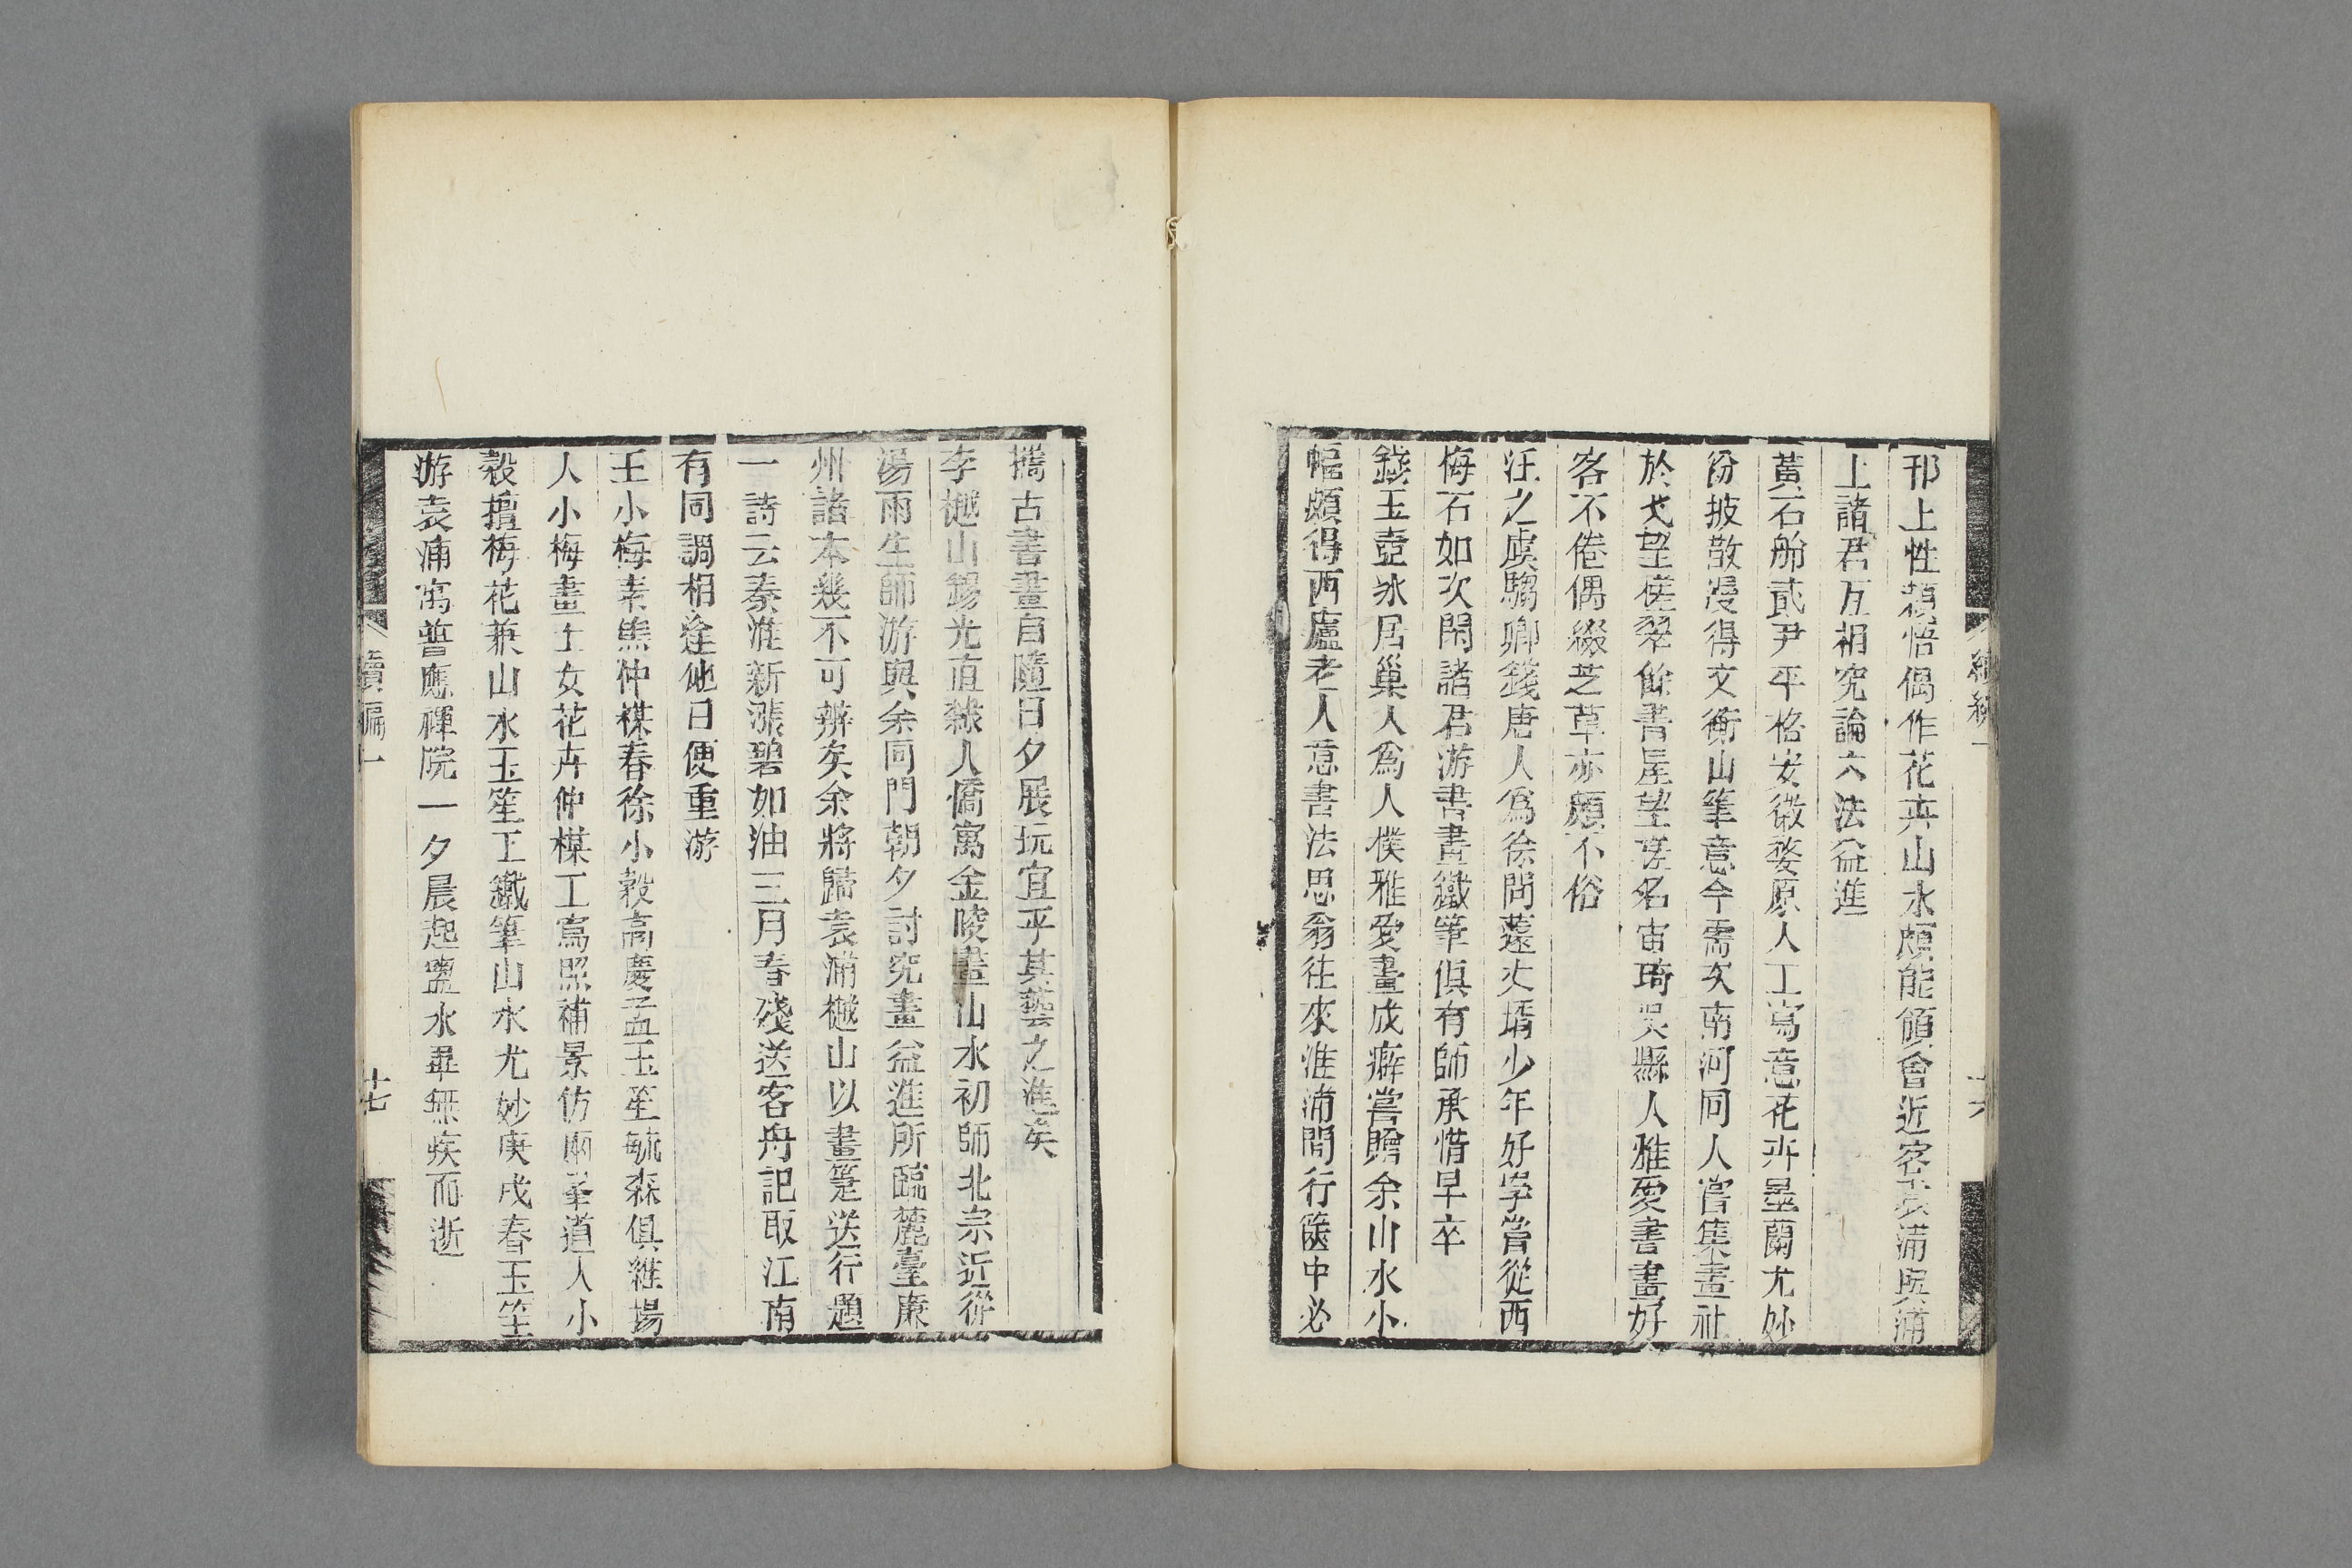 邗上性穎悟偶作花卉山水頗能領會近客袁浦與浦
上諸君互相究論六法益進
黃石舫貳尹平格安徽婺原人工寫意花卉墨蘭尤妙
份披散漫得文衡山筆意今需次南河同人嘗集畫社
於弋望槎翠餘書屋望槎名宙琦吳縣人雅愛書畫好
客不倦偶綴芝草亦頗不俗
汪之虞騶卿錢唐人為徐問蘧丈壻少年好學嘗從西
梅石如次閑諸君游書畫鐵筆俱有師承惜早卒
錢玉壺冰居巢人為人樸雅愛畫成癖嘗贈余山水小
幅頗得西廬老人意書法思翁往來淮浦間行篋中必
攜古書畫自隨日夕展玩宜乎其藝之進矣
李樾山錫光直隸人僑寓金陵畫山水初師北宗近從
湯雨生師游與余同門朝夕討究畫益進所臨麓臺廉
州諸本幾不可辨矣余將歸袁浦樾山以畫箑送行題
一詩云秦淮新漲碧如油三月春殘送客舟記取江南
有同調相逢他日便重游
王小梅素熊仲楳春徐小穀高慶孟玉笙毓森俱維揚
人小梅畫士女花卉仲楳工寫照補景仿兩峯道人小
穀擅梅花兼山水玉笙工鐵筆山水尤妙庚戌春玉笙
游袁浦寓普應禪院一夕晨起盥水畢無疾而逝
續編一
十七